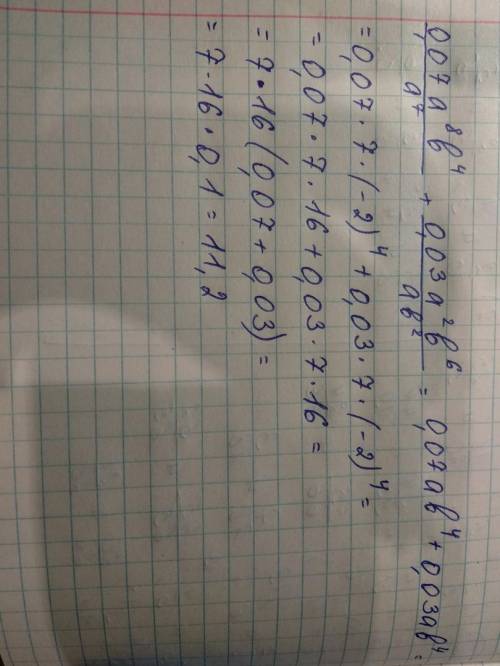 0,07a⁸b⁴/a⁷ + 0,03a²b⁶/ab² = 0,07ab⁴ + 0,03ab⁴ =
= 0,07 · 7 · (-2)⁴ + 0,03 · 7 · (-2)⁴ =
= 0,07 · 7 · 16 + 0,03 · 7 · 16 =
= 7 · 16 (0,07 + 0,03) =
= 7 · 16 · 0,1 = 11,2